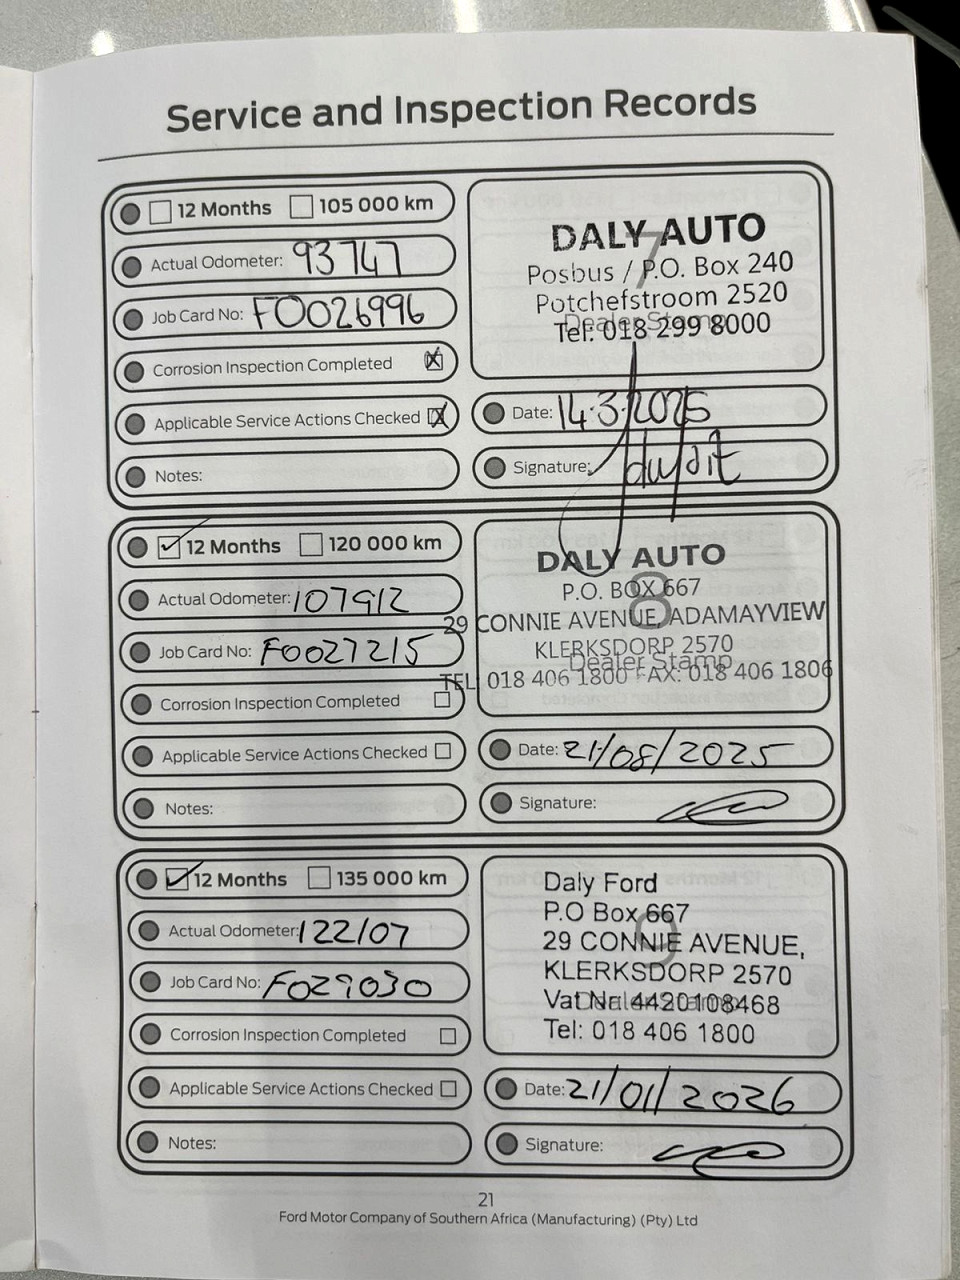 Service and Inspection Records
12 Months 105 000 km
Actual Odometer: 93747
Job Card No: F0026996
Corrosion Inspection Completed
Applicable Service Actions Checked
Notes:
7
DALY AUTO
Posbus / P.O. Box 240
Potchefstroom 2520
Dealer Stamp
Tel: 018 299 8000
Date: 14.3.2025
Signature:
12 Months 120 000 km
Actual Odometer: 107912
Job Card No: F0027215
Corrosion Inspection Completed
Applicable Service Actions Checked
Notes:
8
DALY AUTO
P.O. BOX 667
29 CONNIE AVENUE, ADAMAYVIEW
KLERKSDORP 2570
Dealer Stamp
TEL: 018 406 1800 FAX: 018 406 1806
Date: 21/08/2025
Signature:
12 Months 135 000 km
Actual Odometer: 122107
Job Card No: F029030
Corrosion Inspection Completed
Applicable Service Actions Checked
Notes:
9
Daly Ford
P.O Box 667
29 CONNIE AVENUE,
KLERKSDORP 2570
Dealer Stamp
Vat Nr: 4420108468
Tel: 018 406 1800
Date: 21/01/2026
Signature:
21
Ford Motor Company of Southern Africa (Manufacturing) (Pty) Ltd